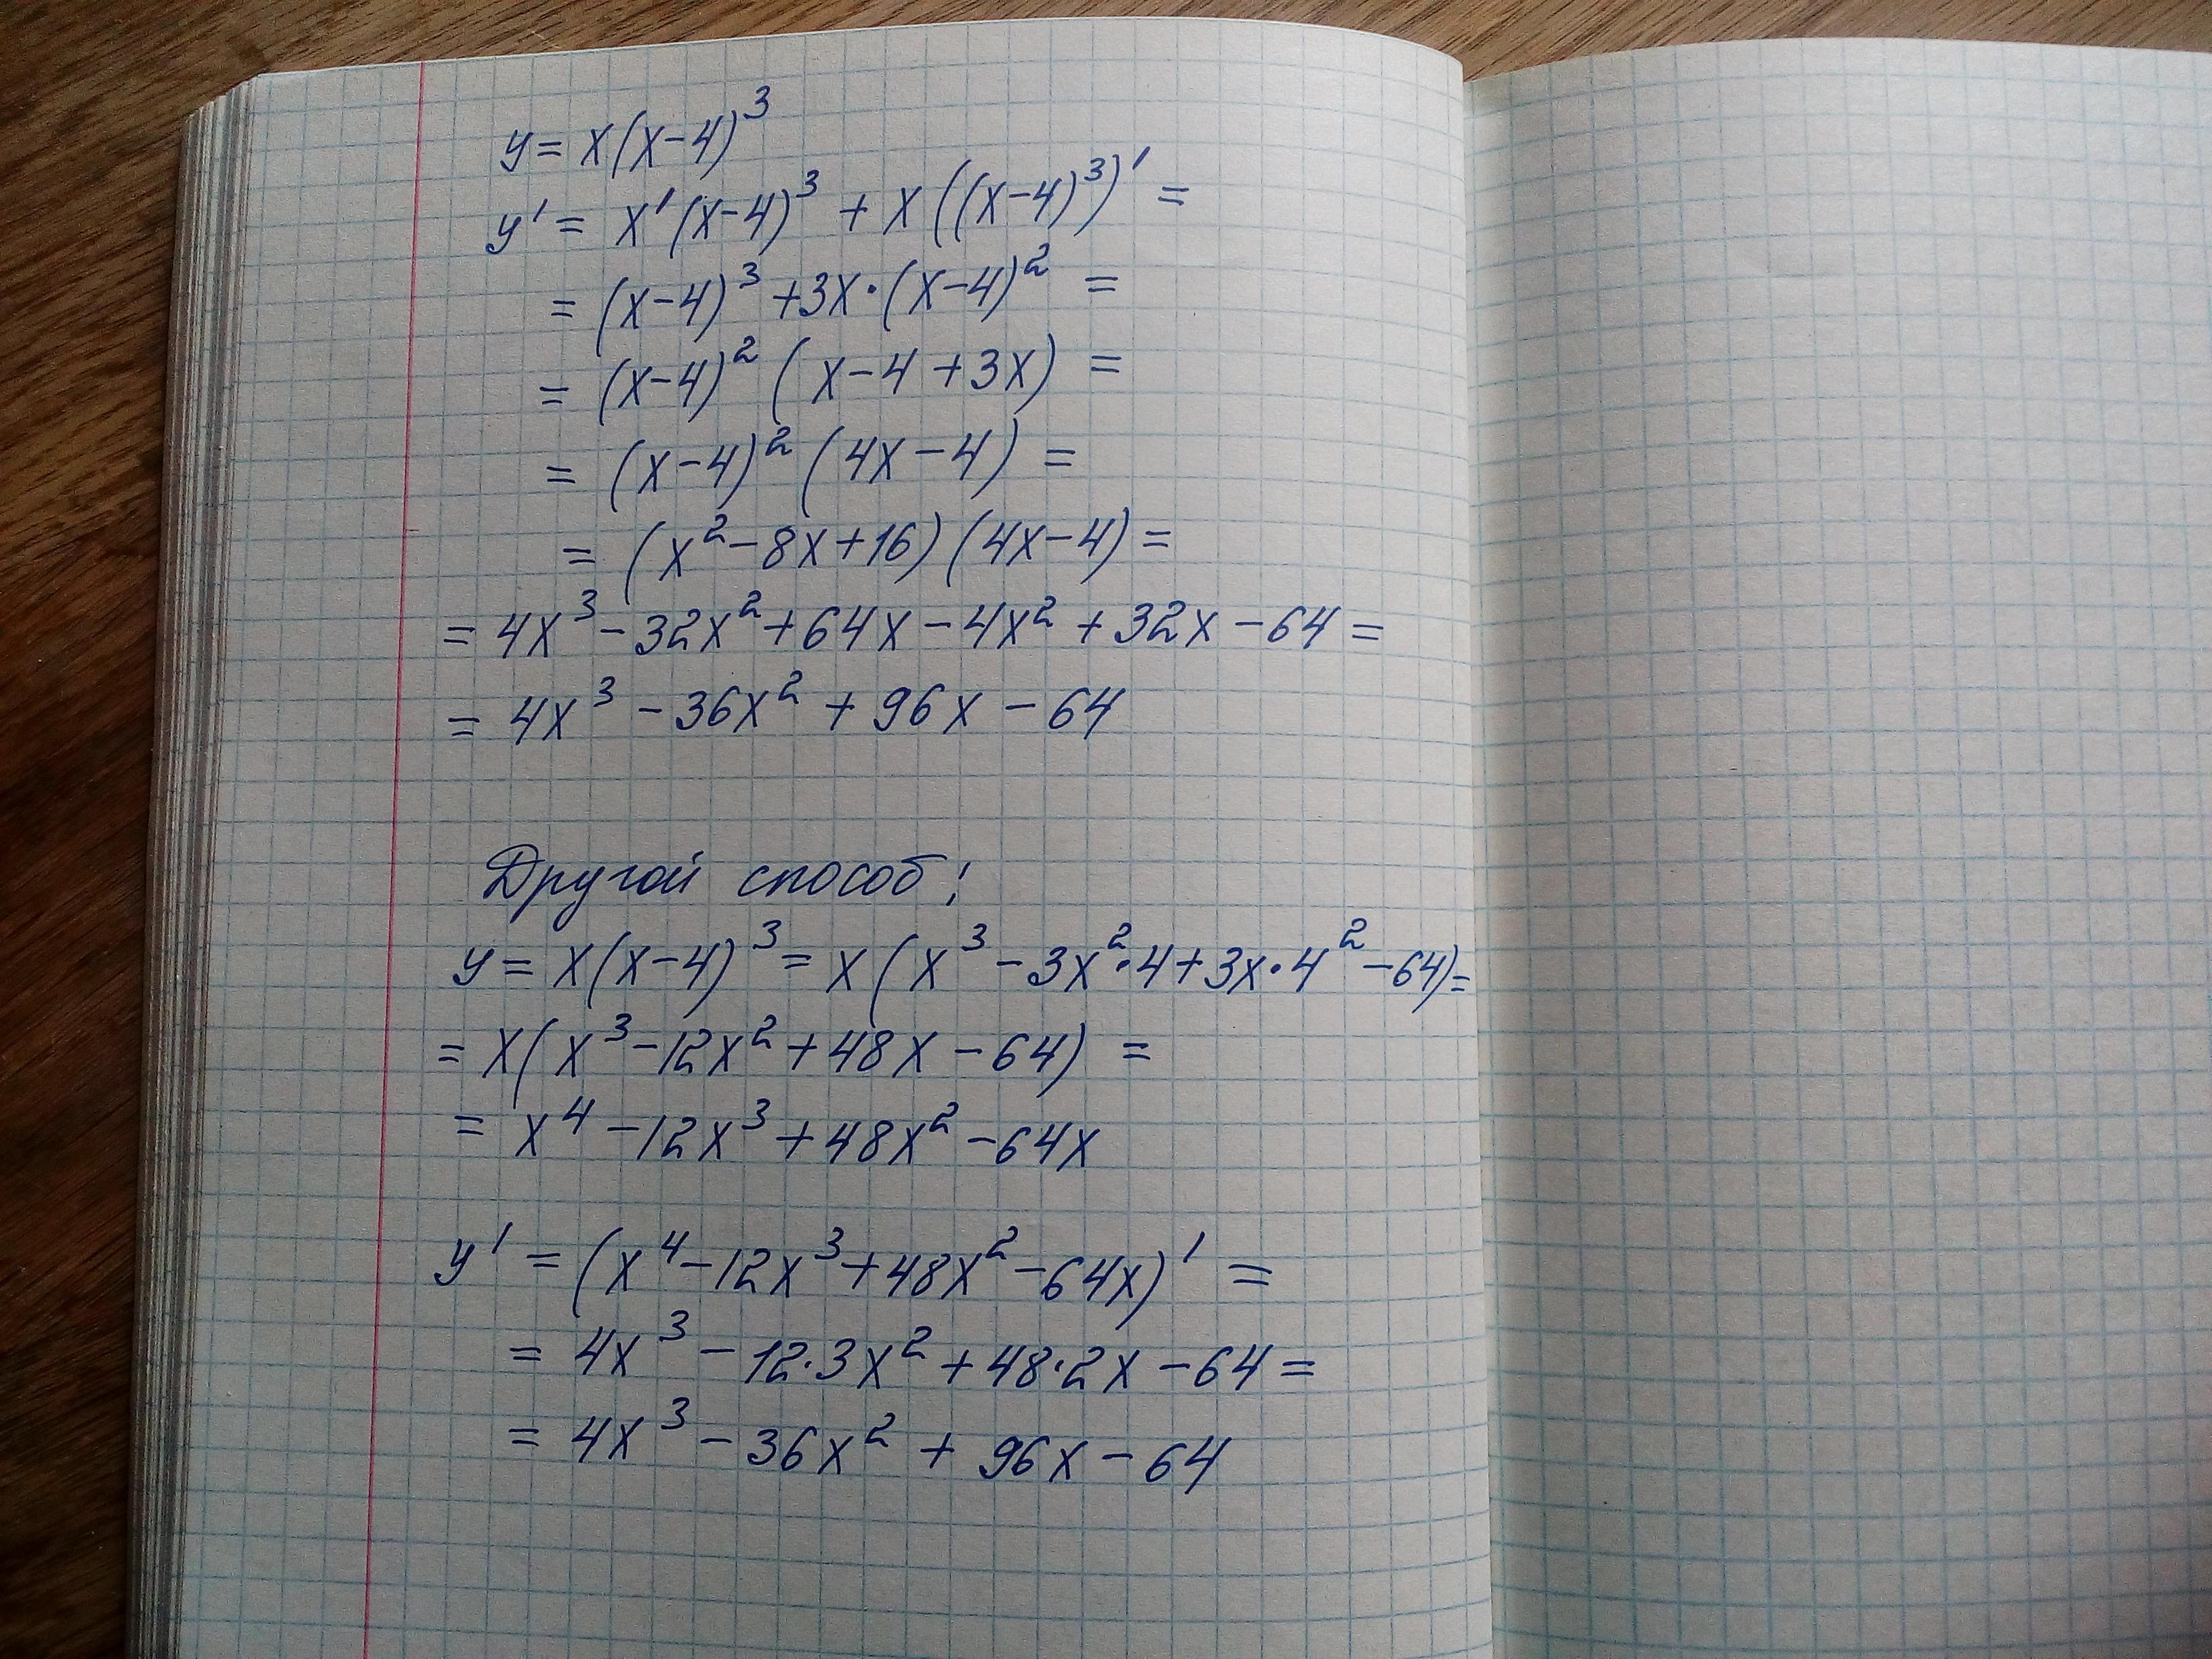 y = x(x-4)³
y' = x'(x-4)³ + x((x-4)³)' =
= (x-4)³ + 3x·(x-4)² =
= (x-4)² (x-4+3x) =
= (x-4)² (4x-4) =
= (x²-8x+16)(4x-4) =
= 4x³-32x²+64x-4x²+32x-64 =
= 4x³-36x²+96x-64
Другой способ:
y = x(x-4)³ = x(x³-3x²·4+3x·4²-64) =
= x(x³-12x²+48x-64) =
= x⁴-12x³+48x²-64x
y' = (x⁴-12x³+48x²-64x)' =
= 4x³-12·3x²+48·2x-64 =
= 4x³-36x²+96x-64